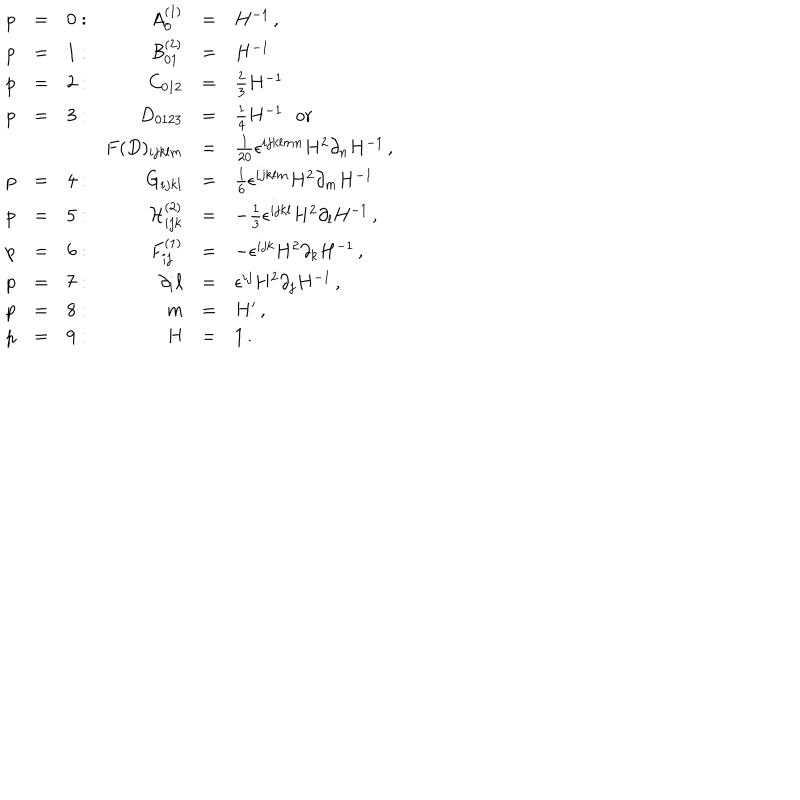 p = 0 : A_0^{(1)} = H^{-1} ,
p = 1 : B_{01}^{(2)} = H^{-1}
p = 2 : C_{012} = \frac{2}{3} H^{-1}
p = 3 : D_{0123} = \frac{1}{4} H^{-1} or
F(D)_{ijklm} = \frac{1}{20} \epsilon^{ijklmn} H^2 \partial_n H^{-1} ,
p = 4 : G_{ijkl} = \frac{1}{6} \epsilon^{ijklm} H^2 \partial_m H^{-1}
p = 5 : \mathcal{H}_{ijk}^{(2)} = -\frac{1}{3} \epsilon^{ijkl} H^2 \partial_l H^{-1} ,
p = 6 : F_{ij}^{(1)} = -\epsilon^{ijk} H^2 \partial_k H^{-1} ,
p = 7 : \partial_i \ell = \epsilon^{ij} H^2 \partial_j H^{-1} ,
p = 8 : m = H' ,
p = 9 : H = 1 .